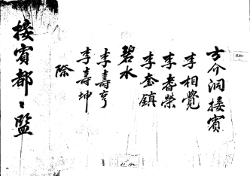 古介洞接賓
李相覺
李春榮
李奎鎮
碧水
李壽亨
李壽坤
除
接賓都監